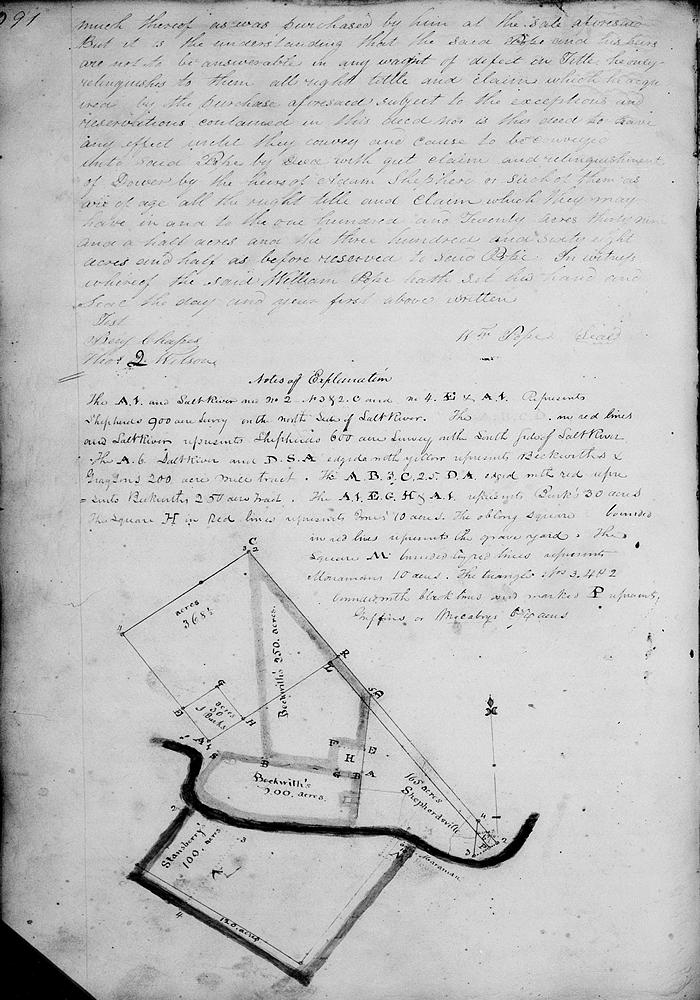 much thereof as was purchased by him at the sale aforesaid
But it is the understanding that the said Pope and his heirs
are not to be answerable in any wa of defect in Title he only
relinquishes to them all right tittle and claim which he acqu
ired by the purchase aforesaid subject to the exceptions and
reservations contained in this deed nor is this deed to have
any effect untill they convey and cause to be conveyed
unto said Pope by Deed with quit claim and relinquishment
of Dower by the heirs of Adam Shepherd or such of them as
are of age all the right title and claim which they may
have in and to the one hundred and Twenty acres thirty
and a half acres and the three hundred and sixty eight
acres and half as before reserved to said Pope In witness
whereof the said William Pope hath set his hand and
Seal the day and year first above written
Test
Benj Chapeze
Wm Pope Seal
Thos Q. Wilson
Notes of Explanation
The A.1. and Salt River no 2 No 3 & 2. C and no 4. E & A1. Represents
Shepherds 900 acre Survey on the north Side of Salt River. The A.B.C.D. in red lines
and Salt River represents Shepherds 600 acre Survey on the South Side of Salt River.
The A.6. Salt River and D.S.A edged with yellow represents Beckwith's &
200 acre Mile tract. The A.B.3.C.2.5.D.A. edged with red repre
=sents Beckwiths 250 acre tract. The A1.E.G.H & A1. represents Burk's 30 acres
The Square H in Red lines represents Jones' 10 acres. The oblong square bounded
in red lines represents the grave yard. The
square M bounded by red lines represents
Maramans 10 acres. The triangle Nos 3. 4 & 2
bounded with black lines and marked P represents
Griffins or 6¾ acres
C
3 2
acres
368½
4
Beckwith's 250. acres.
R
L
5
G
acres
30
J Burks
E
H
A
1
4
S
F
E
B
H
G
B A
D
Beckwith's
200. acres.
165 acres
Shepherdsville
4
P
2
3
2
Stansberry's
100. acres
3
N
Maraman
4
120. acres